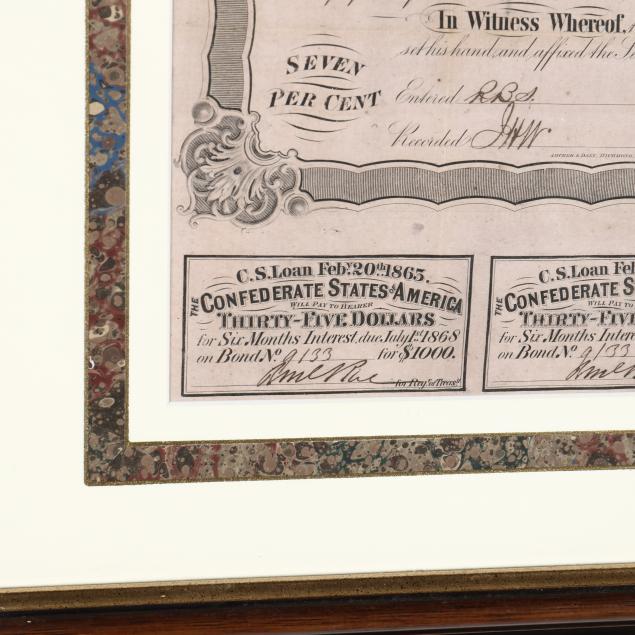 In Witness Whereof,
set his hand, and affixed the
SEVEN
PER CENT
Entered R.B.S.
Recorded J.H.W
ARCHER & DALY, RICHMOND,
C.S. Loan Feby. 20th. 1863.
THE CONFEDERATE STATES of AMERICA
WILL PAY TO BEARER
THIRTY-FIVE DOLLARS
for Six Months Interest, due July 1st. 1868
on Bond No. 9133 for $1000.
for Regr. of Treasy.
C.S. Loan Feb
THE CONFEDERATE STA
WILL PAY TO
THIRTY-FIV
for Six Months Interes
on Bond No. 9133